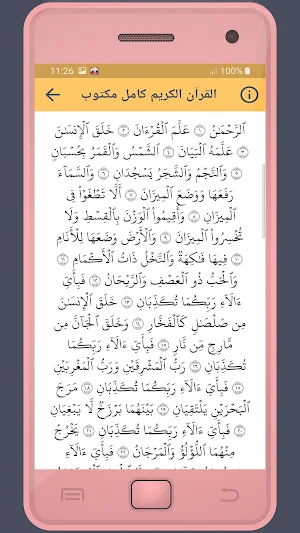 11:26 100%
القرآن الكريم كامل مكتوب
ٱلرَّحْمَٰنُ ١ عَلَّمَ ٱلْقُرْءَانَ ٢ خَلَقَ ٱلْإِنسَٰنَ
٣ عَلَّمَهُ ٱلْبَيَانَ ٤ ٱلشَّمْسُ وَٱلْقَمَرُ بِحُسْبَانٍ
٥ وَٱلنَّجْمُ وَٱلشَّجَرُ يَسْجُدَانِ ٦ وَٱلسَّمَآءَ
رَفَعَهَا وَوَضَعَ ٱلْمِيزَانَ ٧ أَلَّا تَطْغَوْا۟ فِى
ٱلْمِيزَانِ ٨ وَأَقِيمُوا۟ ٱلْوَزْنَ بِٱلْقِسْطِ وَلَا
تُخْسِرُوا۟ ٱلْمِيزَانَ ٩ وَٱلْأَرْضَ وَضَعَهَا لِلْأَنَامِ
١٠ فِيهَا فَٰكِهَةٌ وَٱلنَّخْلُ ذَاتُ ٱلْأَكْمَامِ
١١ وَٱلْحَبُّ ذُو ٱلْعَصْفِ وَٱلرَّيْحَانُ ١٢ فَبِأَىِّ
ءَالَآءِ رَبِّكُمَا تُكَذِّبَانِ ١٣ خَلَقَ ٱلْإِنسَٰنَ
مِن صَلْصَٰلٍ كَٱلْفَخَّارِ ١٤ وَخَلَقَ ٱلْجَآنَّ مِن
مَّارِجٍ مِّن نَّارٍ ١٥ فَبِأَىِّ ءَالَآءِ رَبِّكُمَا
تُكَذِّبَانِ ١٦ رَبُّ ٱلْمَشْرِقَيْنِ وَرَبُّ ٱلْمَغْرِبَيْنِ
١٧ فَبِأَىِّ ءَالَآءِ رَبِّكُمَا تُكَذِّبَانِ ١٨ مَرَجَ
ٱلْبَحْرَيْنِ يَلْتَقِيَانِ ١٩ بَيْنَهُمَا بَرْزَخٌ لَّا يَبْغِيَانِ
٢٠ فَبِأَىِّ ءَالَآءِ رَبِّكُمَا تُكَذِّبَانِ ٢١ يَخْرُجُ
مِنْهُمَا ٱللُّؤْلُؤُ وَٱلْمَرْجَانُ ٢٢ فَبِأَىِّ ءَالَآءِ